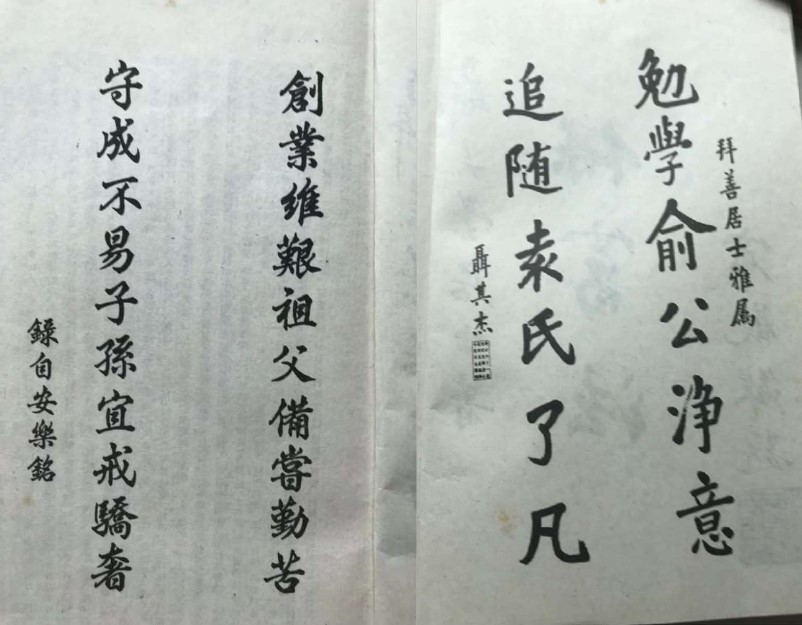 拜善居士雅属
勉學俞公淨意
追随袁氏了凡
聶其杰
創業維艱祖父備嘗勤苦
守成不易子孫宜戒驕奢
錄自安樂銘